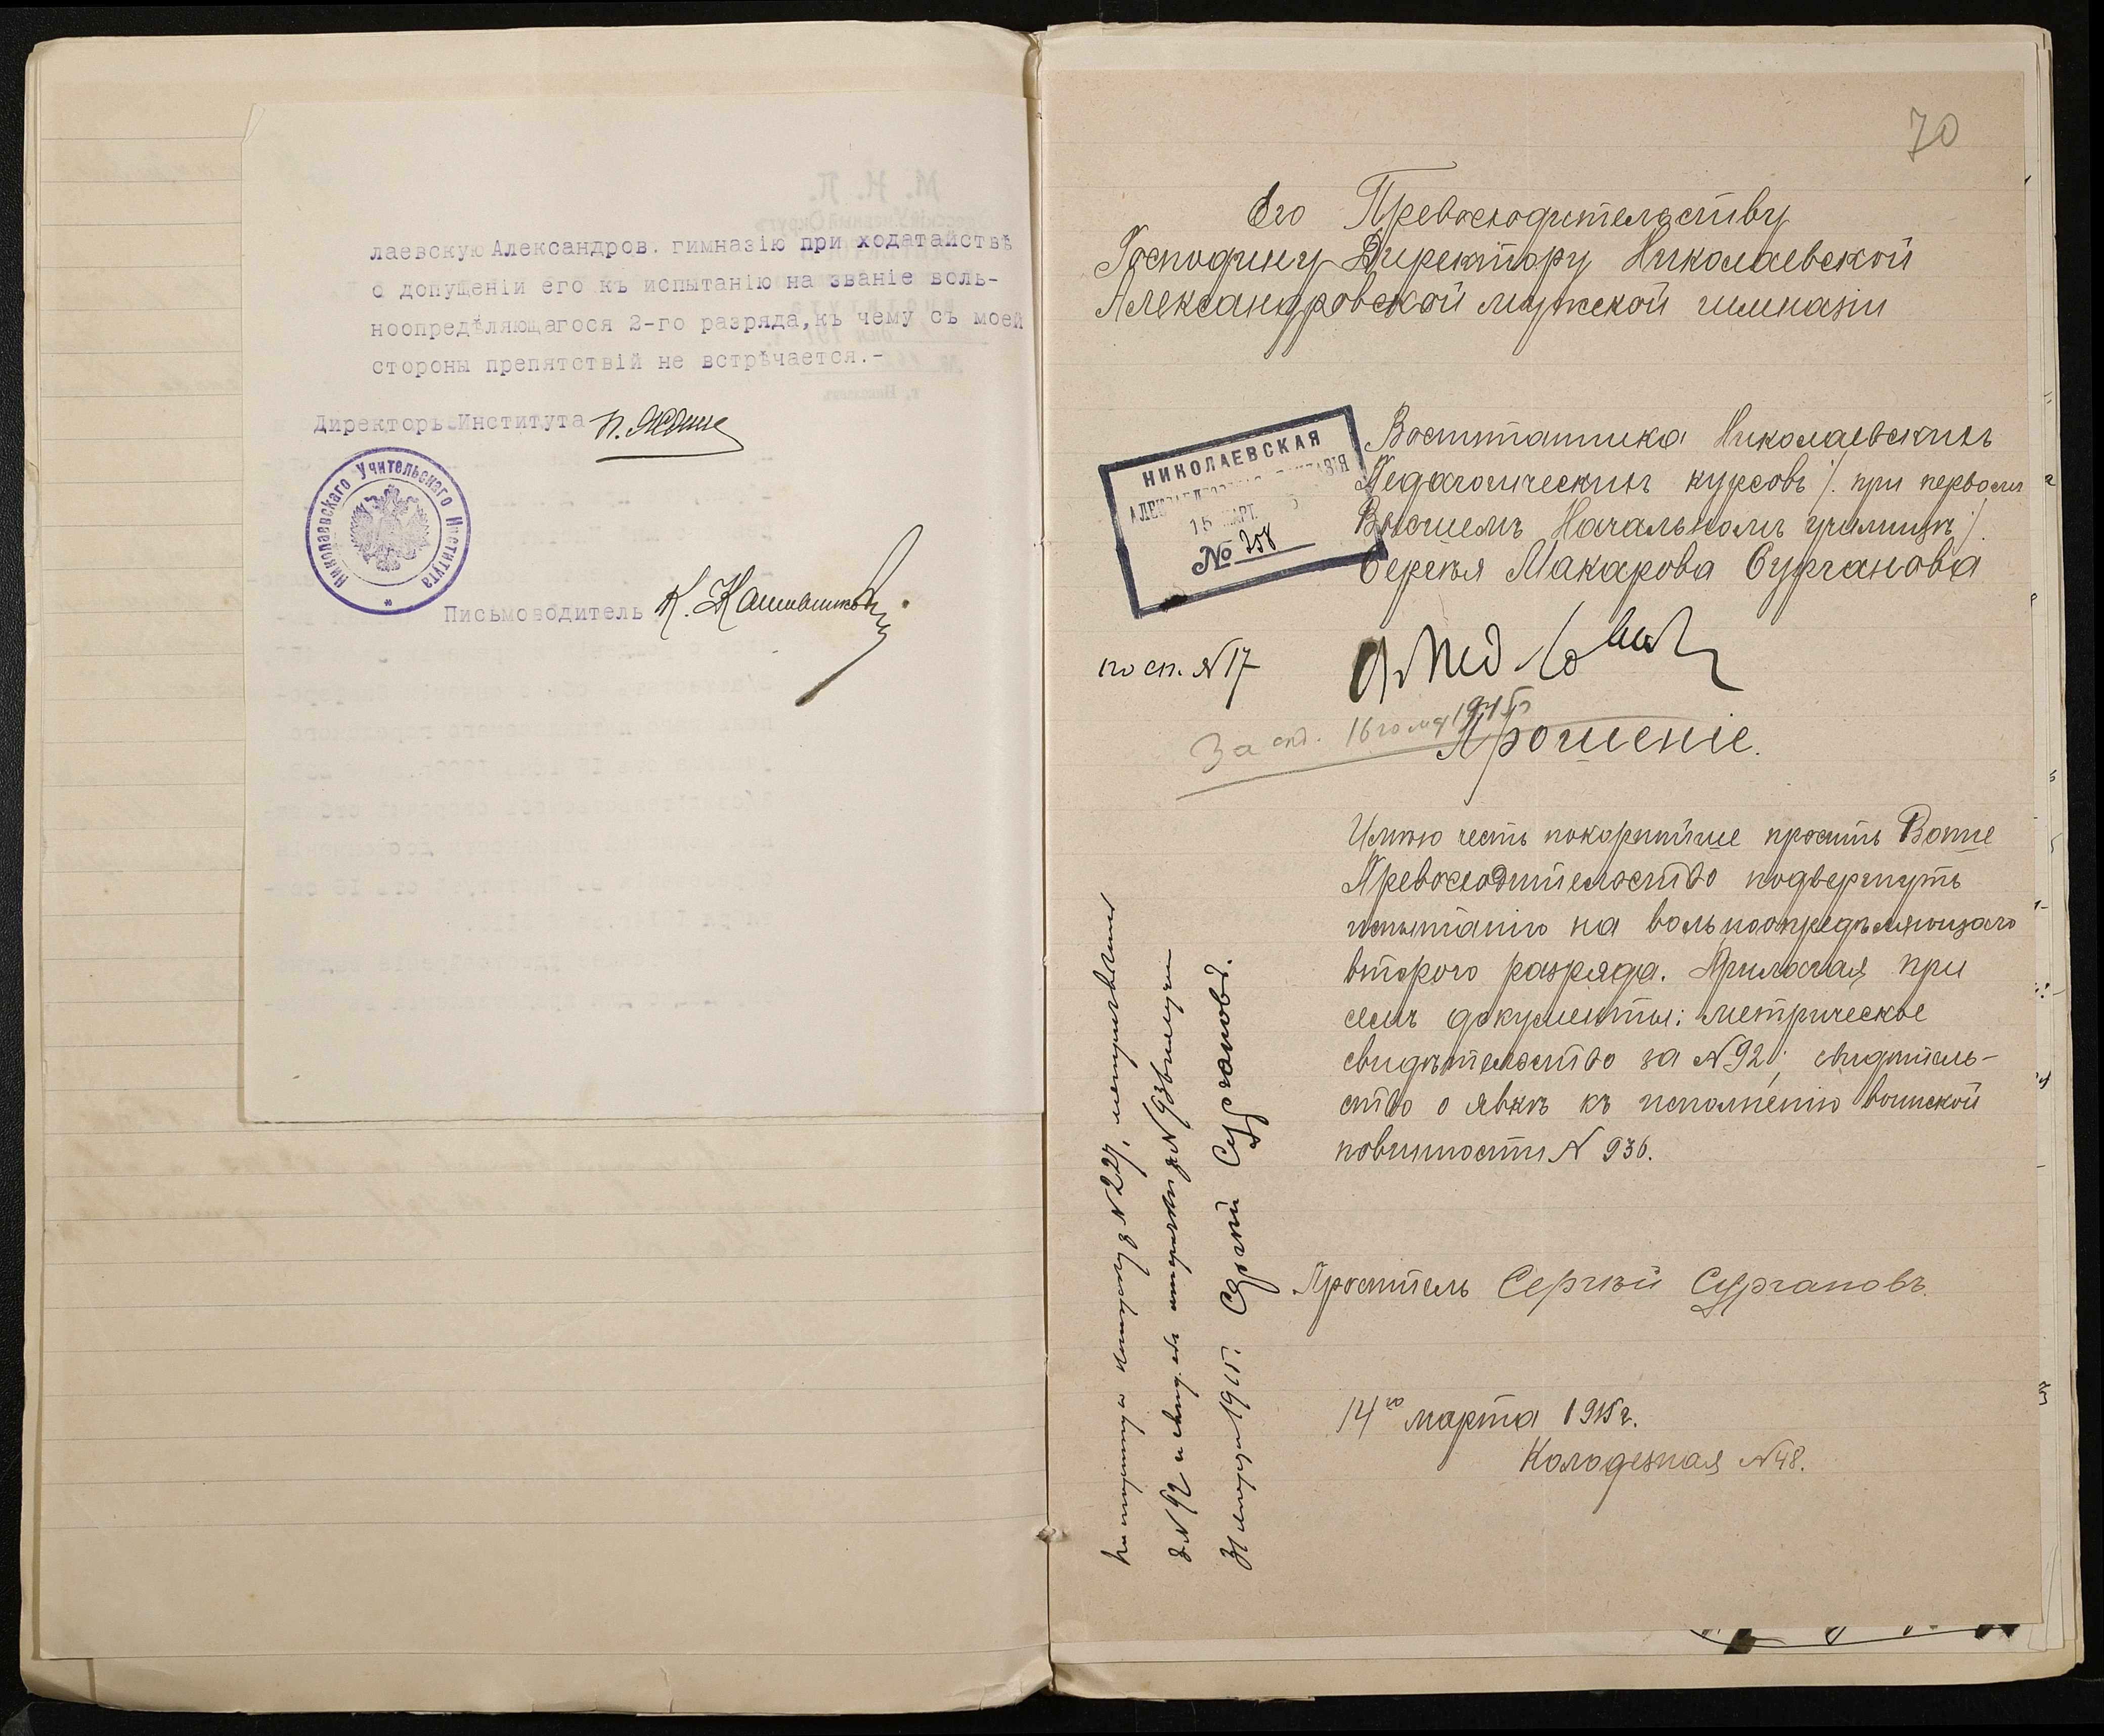 лаевскую Александров. гимназію при ходатайствѣ
о допущеніи его къ испытанію на званіе воль-
ноопредѣляющагося 2-го разряда, къ чему съ моей
стороны препятствій не встрѣчается.-
Директоръ Института
Николаевскаго Учительскаго Института
Письмоводитель К.
70
Его Превосходительству
Господину Директору Николаевской
Александровской мужской гимназіи
НИКОЛАЕВСКАЯ
15 МАРТ.
№ 358
Воспитанника Николаевскихъ
Педагогическихъ курсовъ /. при первомъ
Высшемъ Начальномъ училищѣ /.
Сергѣя Макарова Сурганова
по сп. № 17
За
Прошеніе.
Имѣю честь покорнѣйше просить Ваше
Превосходительство подвергнуть
испытанію на вольноопредѣляющаго
второго разряда. Прилагая при
семъ документы: метрическое
свидѣтельство за № 92; свидѣтель-
ство о явкѣ къ исполненію воинской
повинности № 936.
Проситель Сергѣй Сургановъ.
14го марта 1915 г.
Колодезная № 48.
№ 227,
№ 92 и
марта 1915 г. Сергѣй Сургановъ.